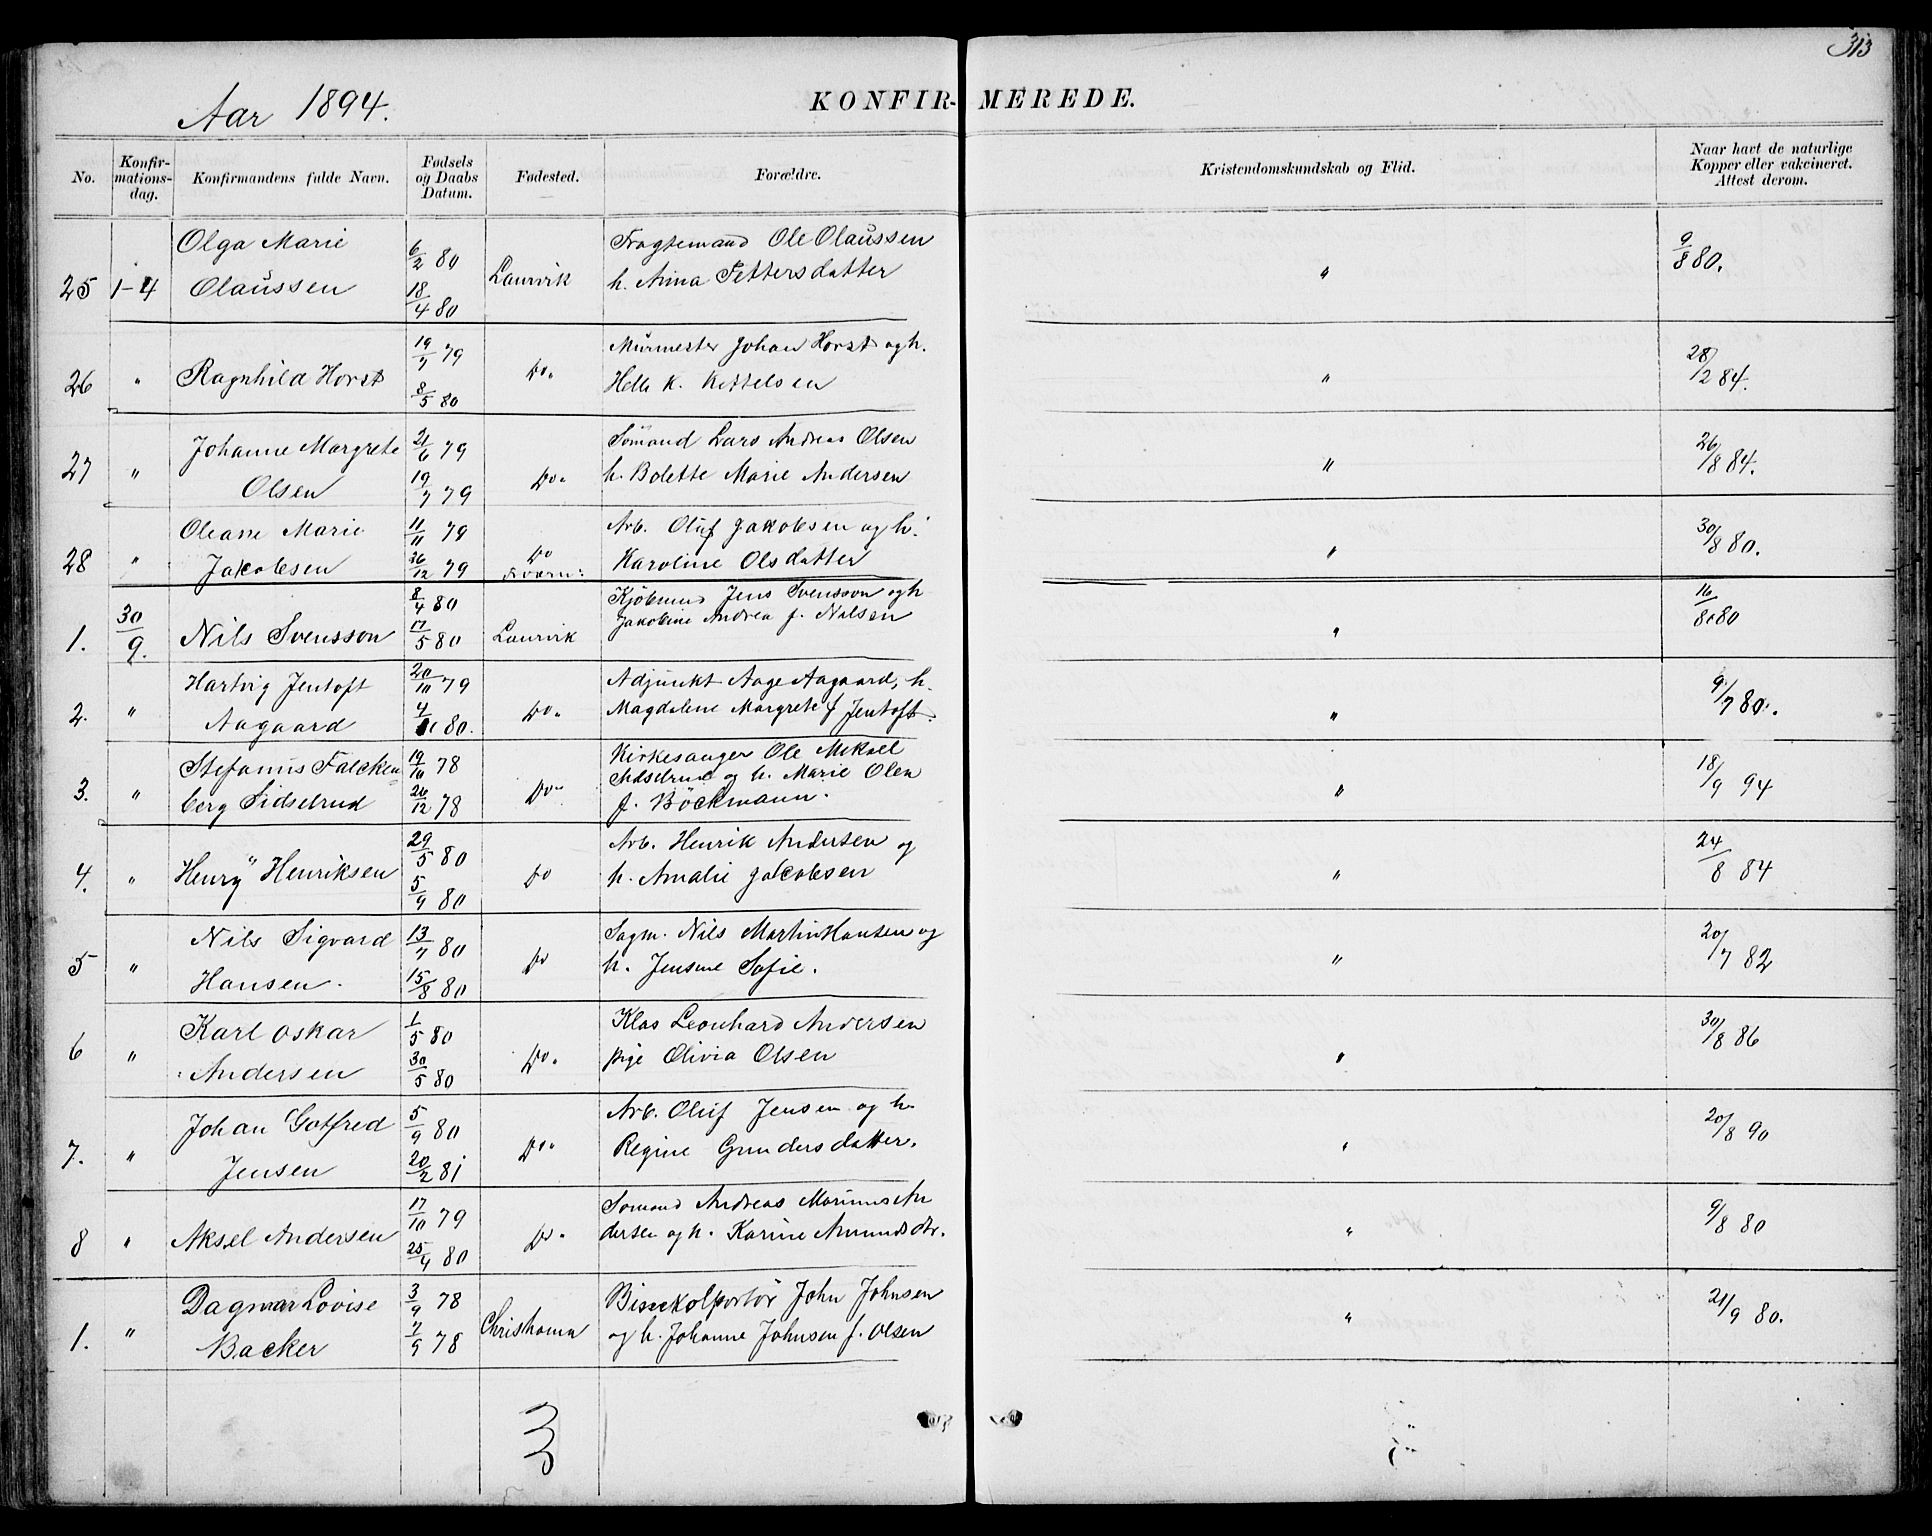 313
Aar 1894.
KONFIR- MEREDE.
No.
Konfir-
mations-
dag.
Konfirmandens fulde Navn.
Fødsels
og Daabs
Datum.
Fødested.
Forældre.
Kristendomskundskab og Flid.
Naar havt de naturlige
Kopper eller vakcineret.
Attest derom.
25 1-4 Olga Marie 6/2 80 Laurvik Fragtemand Ole Olaussen " 9/8 80.
Olaussen 18/4 80 h. Anna Pettersdatter
26 " Ragnhild Horst 19/7 79 Do. Murmester Johan Horst og h. " 28/2 84.
8/5 80 Helle K. Kittelsen
27 " Johanne Margrete 21/6 79 Do. Sømand Lars Andreas Olsen " 26/8 84.
Olsen 19/7 79 h. Bolette Marie Andersen
28 " Oleane Marie 11/11 79 Do Arb. Oluf Jakobsen og h. " 30/8 80.
Jakobsen 26/12 79 Karoline Olsdatter
1. 30/9. Nils Svensson 8/4 80 Laurvik Kjøbmd Jens Svensson og h " 16/8 80
17/5 80 Jakobine Andrea f. Nilsen
2. " Hartvig Jentoft 20/10 79 Do. Adjunkt Aage Aagaard, h. " 9./7 80.
Aagaard 80. Magdalene Margrete f Jentoft.
3. " Stefanus Falcken 19/10 78 Do. Kirkesanger Ole Miksel " 18/9 94
berg Sidselrud 26/12 78 Sidselrud og h. Marie Olea
f. Böckmann.
4. " Henry Henriksen 29/5 80 Do Arb. Henrik Andersen og " 24/8 84
5/9 80 h. Amalie Jakobsen
5 " Nils Sigvard 13/7 80 Do Sagm. Nils Martin Hansen og " 20/7 82
Hansen. 15/8 80 h. Jensine Sofie.
6 " Karl Oskar 1/5 80 Do. Klas Leonhard Andersen " 30/8 86
Andersen 30/5 80 pige Olivia Olsen
7. " Johan Gotfred 5/9 80 Do. Arb. Oluf Jensen og h. " 20/8 90
Jensen 20/2 81 Regine Gundersdatter.
8 " Aksel Andersen 17/10 79 Do. Sømand Andreas Marinus An " 9/8 80
25/4 80 dersen og h. Karine Amundsdtr.
1. " Dagmar Lovise 3/9 78 Christiania John Johnsen " 21/9 80.
Backer 7/9 78 og h. Johanne Johnsen f. Olsen